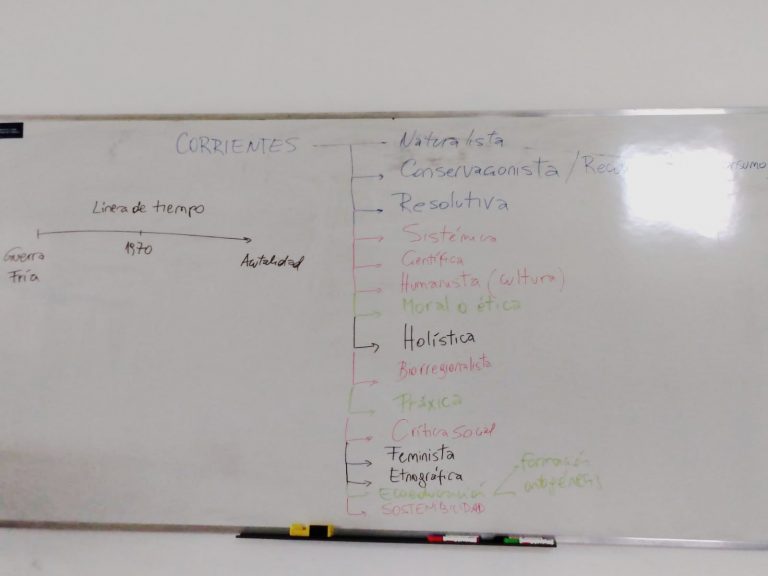 CORRIENTES
Naturalista
Conservacionista /
Resolutiva
Sistémica
Científica
Humanista (cultura)
Moral o ética
Holística
Biorregionalista
Práxica
Crítica social
Feminista
Etnográfica
Ecoeducación
Formación
ontogénesis
SOSTENIBILIDAD
Línea de tiempo
Guerra
Fría
1970
Actalidad